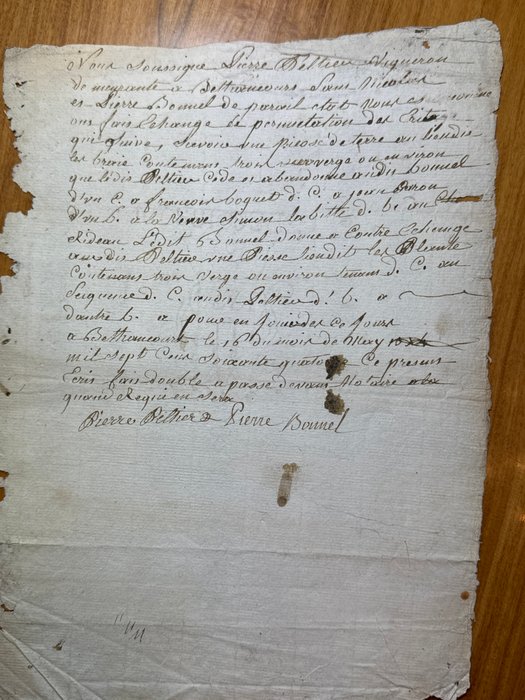 Nous soussigné Pierre Pelliéz Vigneron
demeurante a Bethancours Saint Nicolas
et Pierre Bonnel de pareil etat Nous
ont fais Echange et permutation des
qui suive, Scavoir une piesse de terre au liendis
les braie Contenant trois verge ou environ
que ledis Pelliez Cede et abandonne audis bonnel
d'un C. a francois boquet d. C. a jean Baron
d'un b. a la Veuve Simon labitte d. b. au
Rideau Ledit Bonnel donne a Contre Echange
audis Pelliez une Piesse liendit les
Contenans trois verge ou environ tenans d. C. au
Seigneur d. C. audis Pelliez d'. b. a
d'autre b. a pour en Jouir des Ce Jours
a Bethancourt le 16 du mois de May
mil sept Cens Soixante Ce present
Ecris fais double a passe devans Notaire a la
quand Requis en sera
Pierre Pelliez Pierre Bonnel